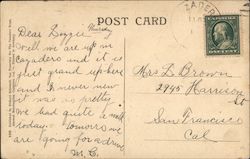 POST CARD
Dear Lizzie Thursday
well we are up in
Cazadero and it is
just grand up here
and I never new
it was so pretty
we had quite a walk
today. tomorrow we
are going for a drive
M. C.
Mrs L Brown
2945 Harrison
St
San Francisco
Cal